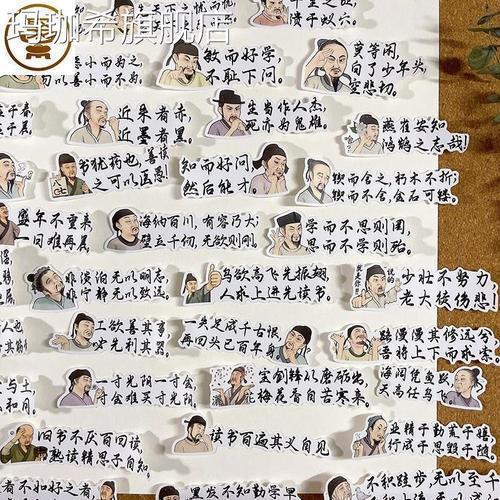 玛珈希旗舰店
恶小而为之,
勿以善小而不为。
敏而好学,
不耻下问。
溃于蚁穴。
莫等闲,
白了少年头,
空悲切。
近朱者赤,
近墨者黑。
生当作人杰,
死亦为鬼雄。
燕雀安知
鸿鹄之志哉!
书犹药也,善读
之可以医愚。
知而好问,
然后能才。
锲而舍之,朽木不折;
锲而不舍,金石可镂。
盛年不重来,
一日难再晨。
海纳百川,有容乃大;
壁立千仞,无欲则刚。
学而不思则罔,
思而不学则殆。
非淡泊无以明志,
非宁静无以致远。
鸟欲高飞先振翅,
人求上进先读书。
少壮不努力,
老大徒伤悲。
工欲善其事,
必先利其器。
一失足成千古恨,
再回头已百年身。
路漫漫其修远兮,
吾将上下而求索。
一寸光阴一寸金,
寸金难买寸光阴。
宝剑锋从磨砺出,
梅花香自苦寒来。
海阔凭鱼跃,
天高任鸟飞。
旧书不厌百回读,
熟读精思子自知。
读书百遍其义自见
业精于勤荒于嬉,
行成于思毁于随。
好之者,
黑发不知勤学早,
不积跬步,无以至千